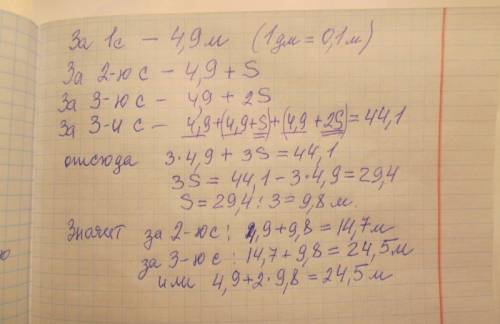 За 1с – 4,9м (1дм = 0,1м)
За 2-юс – 4,9 + S
За 3-юс – 4,9 + 2S
За 3-и с – 4,9 + (4,9+S) + (4,9 + 2S) = 44,1
отсюда 3·4,9 + 3S = 44,1
3S = 44,1 – 3·4,9 = 29,4
S = 29,4 : 3 = 9,8 м.
Значит за 2-юс: 4,9+9,8 = 14,7м
за 3-юс: 14,7 + 9,8 = 24,5м
или 4,9+2·9,8 = 24,5м